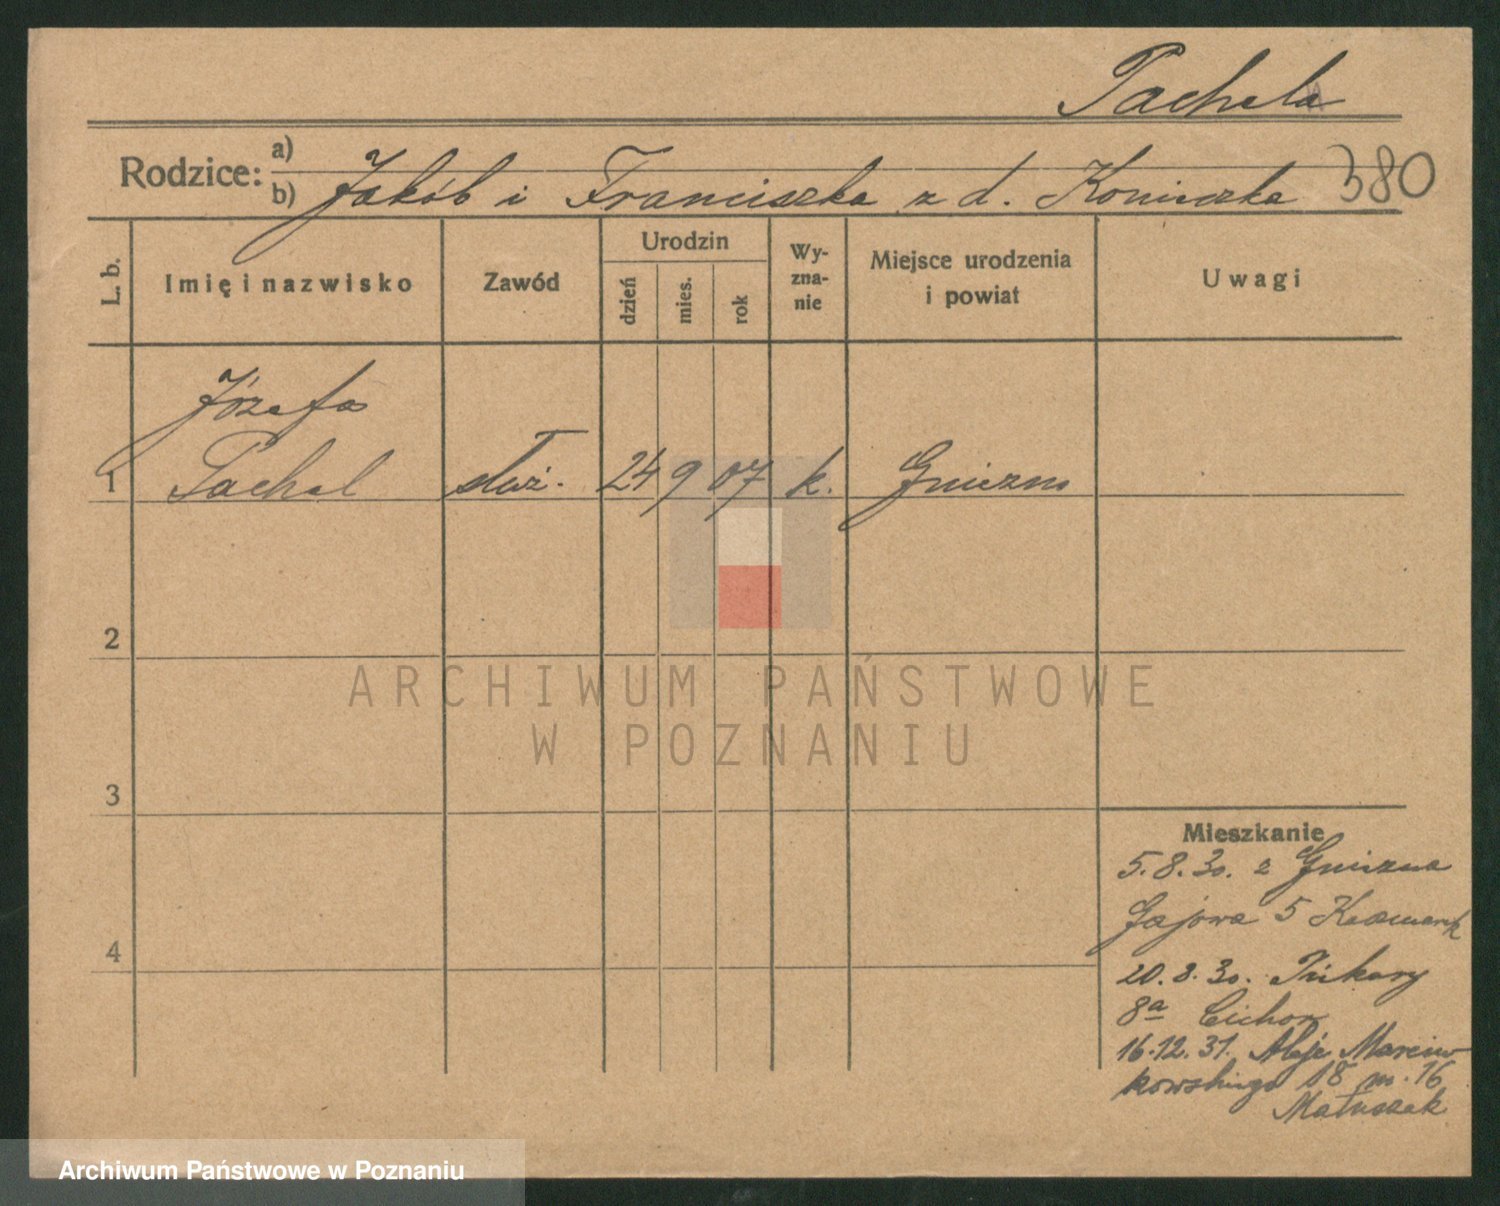 Pachela
Rodzice: a)
b) Jakób i Franciszka z d. Konieczka 380
L. b. Imię i nazwisko Zawód Urodzin dzień mies. rok Wyznanie Miejsce urodzenia i powiat Uwagi
Józefa
1 Pachel służ. 24 9 07 k. Gniezno
2
ARCHIWUM PAŃSTWOWE
W POZNANIU
3
Mieszkanie
5.8.30. z Gniezna
Gajowa 5 Kaczmark
4
20.8.30. Piekary
8a Cichor
16.12.31. Aleje Marcin-
kowskiego 18 m. 16
Matuszak
Archiwum Państwowe w Poznaniu